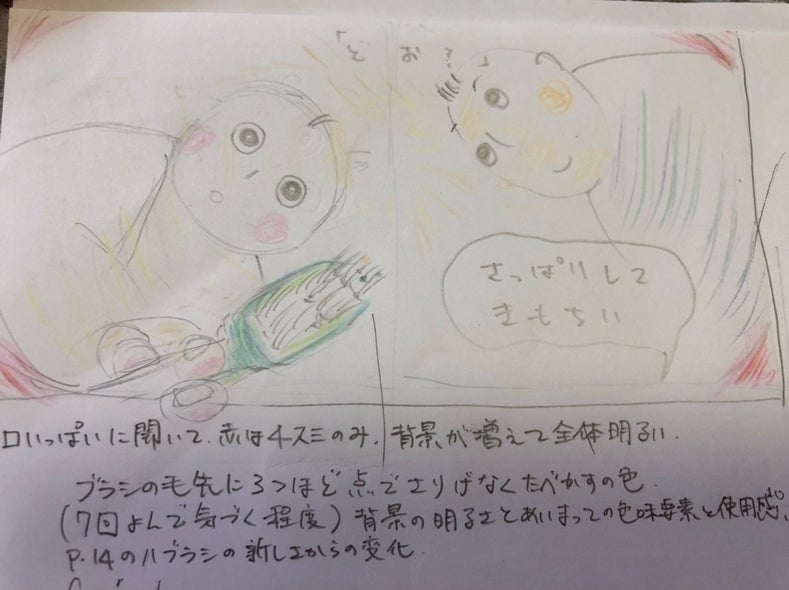 「どお?」
さっぱりして
きもちい
口いっぱいに開いて、赤は4スミのみ、背景が増えて全体明るい.
ブラシの毛先に3つほど点でさりげなくたべかすの色.
(7回よんで気づく程度) 背景の明るさとあいまっての色味要素と使用感.
P.14のハブラシの新しさからの変化.